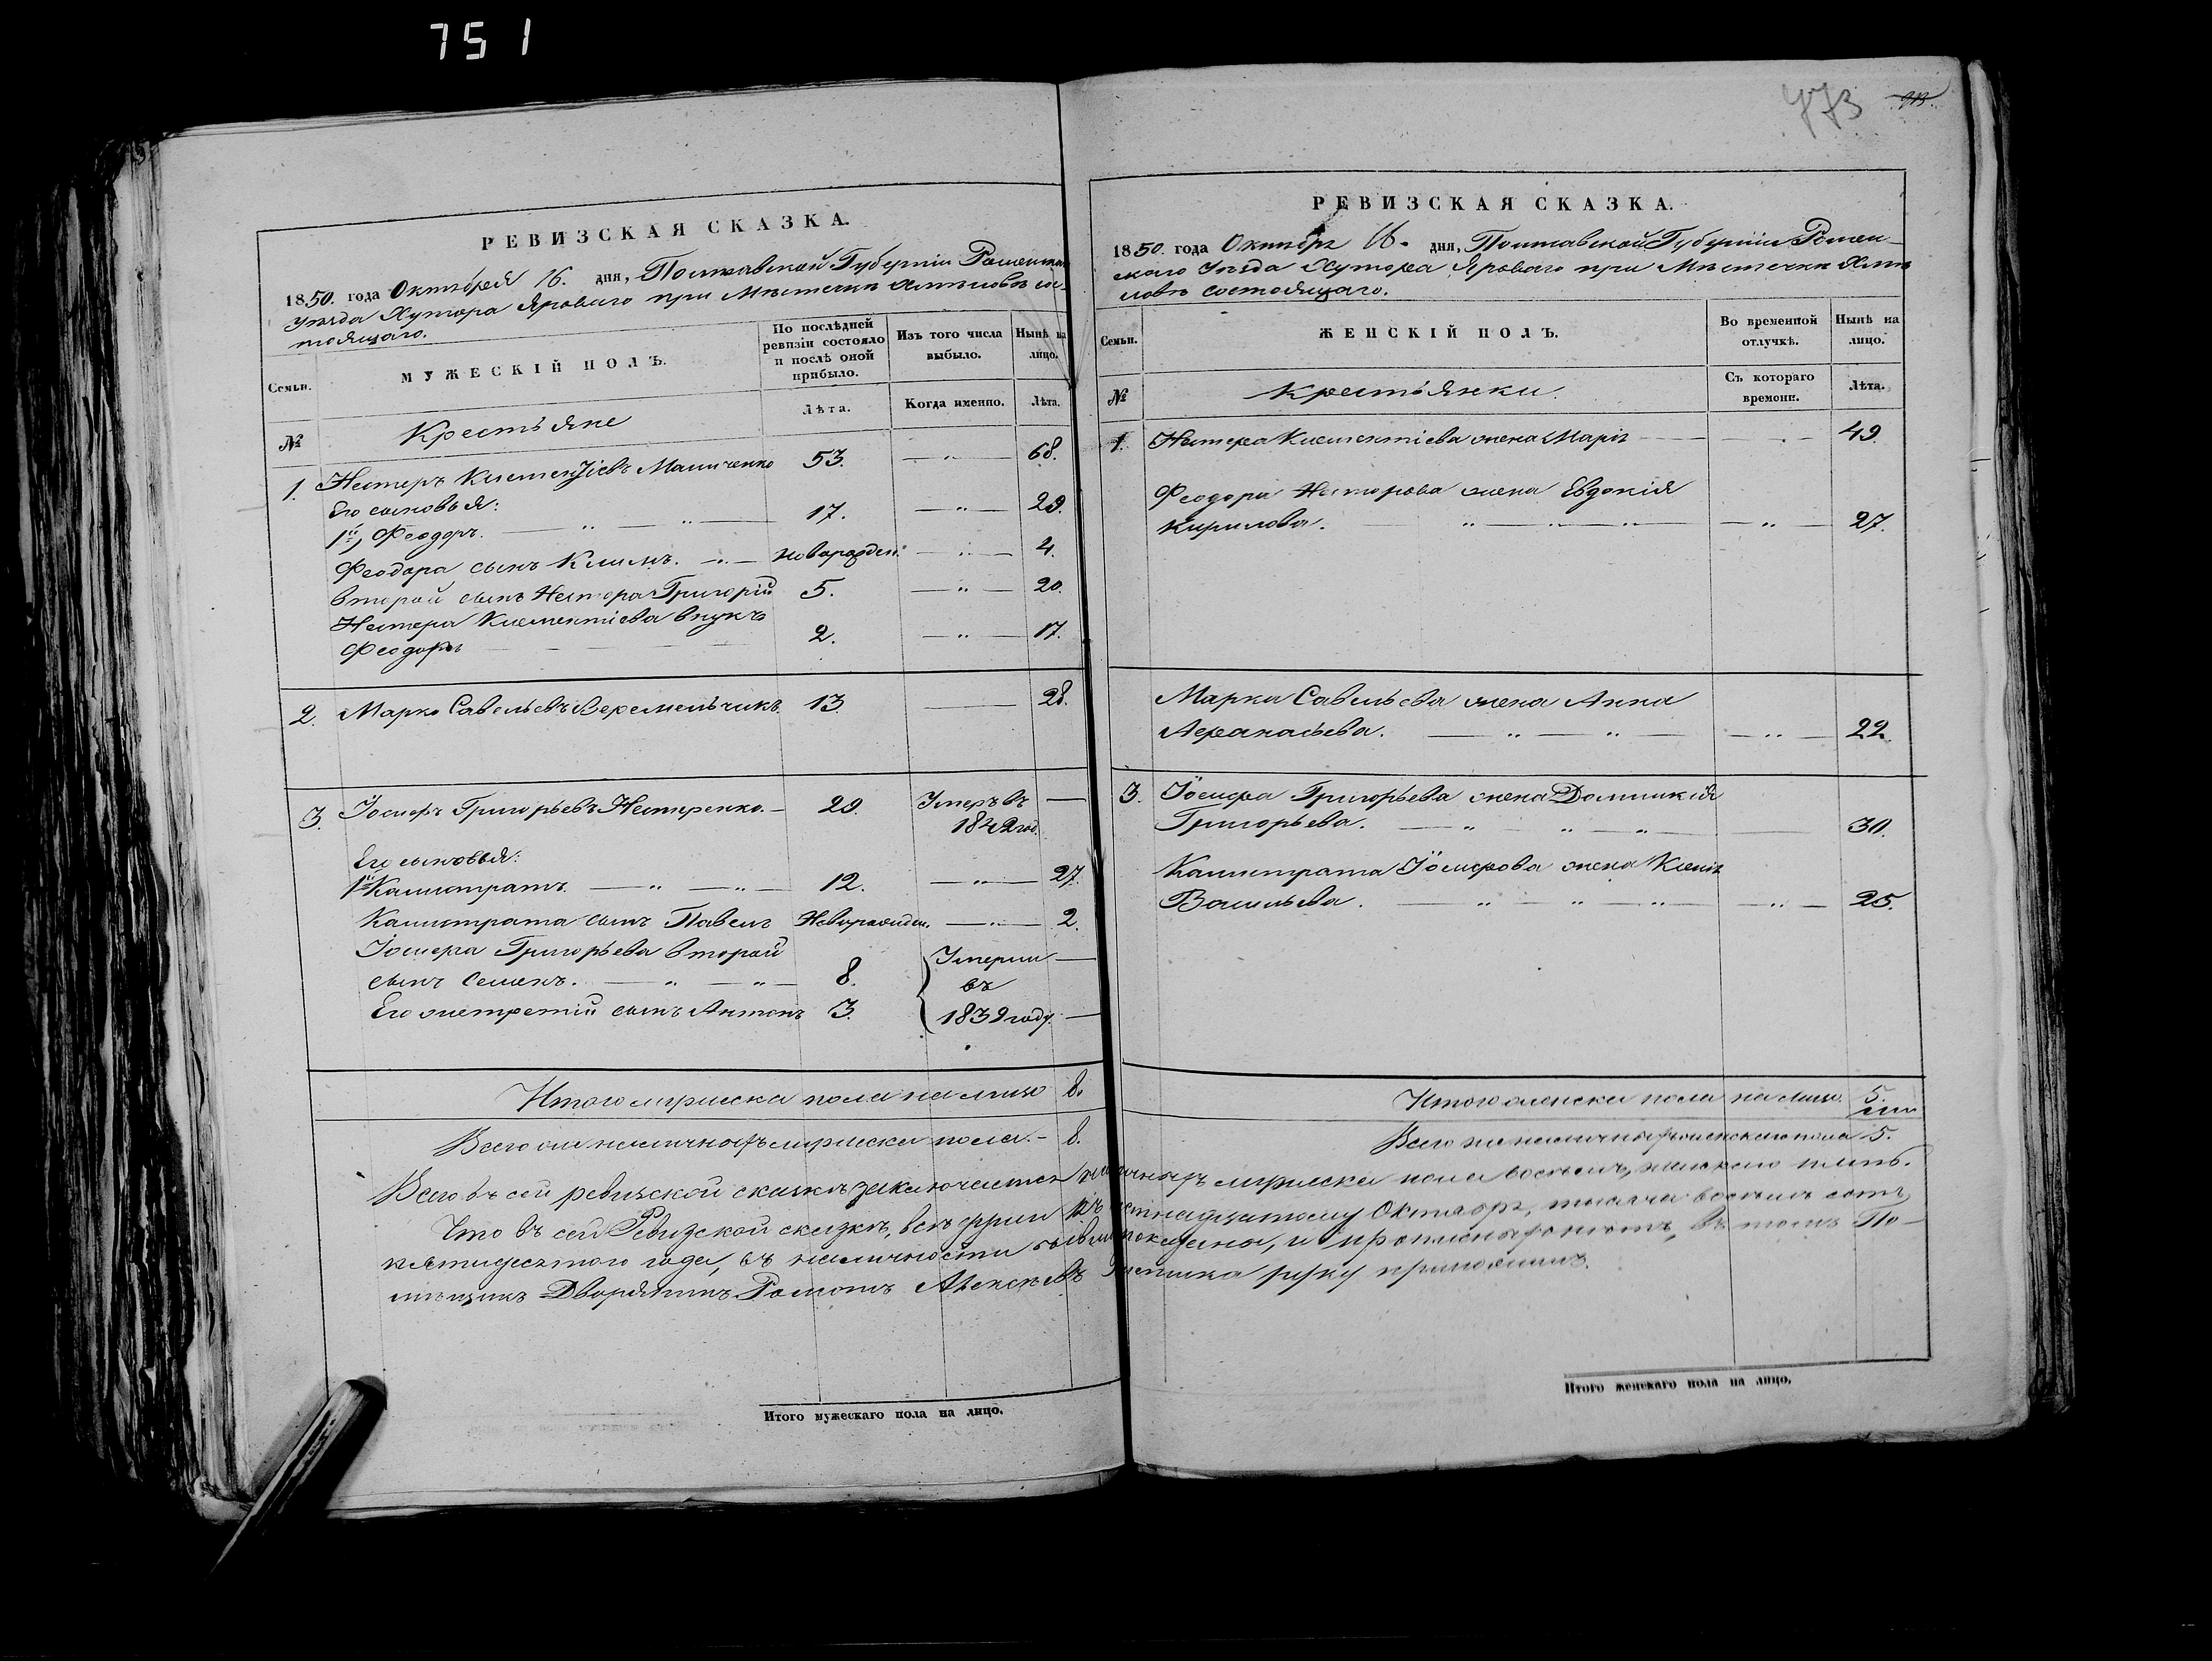 751
РЕВИЗСКАЯ СКАЗКА.
1850. года Октября 16. дня, Полтавской Губерніи Роменскаго
уѣзда Хутора Яроваго при Мѣстечкѣ Хмѣловѣ сос-
тоящаго.
Семьи.
МУЖЕСКІЙ ПОЛЪ.
По послѣдней ревизіи состояло и послѣ оной прибыло.
Изъ того числа выбыло.
Нынѣ на лицо.
№
Крестьяне
Лѣта.
Когда именно.
Лѣта.
1. Нестеръ Клементіевъ Маличенко 53. — " — 68.
Его сыновья:
1й, Феодоръ. — " — " — 17. — " — 29.
Феодора сынъ Климъ. — " — новорожден: — " — 4.
второй сынъ Нестора Григорій 5. — " — 20.
Нестера Клементіева внукъ
Феодоръ 2. — " — 17.
2. Марко Савельевъ Веремейчикъ 13 — 28.
3. Іосифъ Григорьевъ Нестеренко. — 29. Умеръ въ —
1842 год.
Его сыновья:
1й Калистратъ. — " — " — 12. — " — 27.
Калистрата сынъ Павелъ Новорожден. — " — 2.
Іосифа Григорьева второй
сынъ Семенъ. — " — " — 8. Умерли —
въ
Его же третій сынъ Антонъ 3. 1839 году. —
Итого мужеска пола на лицо 8.
Всего же наличныхъ мужеска пола. — 8.
Итого мужескаго пола на лицо.
773
РЕВИЗСКАЯ СКАЗКА.
1850. года Октября 16. дня, Полтавской Губерніи Ромен-
скаго уѣзда Хутора Яроваго при Мѣстечкѣ Хмѣ
ловѣ состоящаго.
Семьи.
ЖЕНСКІЙ ПОЛЪ.
Во временной отлучкѣ.
Нынѣ на лицо.
№
Крестьянки.
Съ котораго времени.
Лѣта.
1. Нестера Клементіева жена Марія — " — 49.
Феодора Несторова жена Евдокія
Кирилова. — " — " — " — " — 27.
Марка Савельева жена Анна
Афанасьева. — " — " — — " — 22.
3. Іосифа Григорьева жена Домникія
Григорьева. — " — " — " — 30.
Калистрата Іосифова жена Ксенія
Васильева. — " — " — " — — " — 25.
Итого женска пола на лицо. 5.
Всего же наличныхъ женскаго пола 5.
Всего въ сей ревизской сказкѣ заключается наличныхъ мужеска пола восемь, женскаго пять.
Что въ сей Ревизской сказкѣ, всѣ души къ шестнадцатому Октября, тысяча восемь сотъ
пятидесятого года, въ наличности показаны, и прописныхъ нѣтъ, въ томъ По-
мѣщикъ Дворянинъ Романъ Алексѣевъ руку приложилъ.
Итого женскаго пола на лицо.